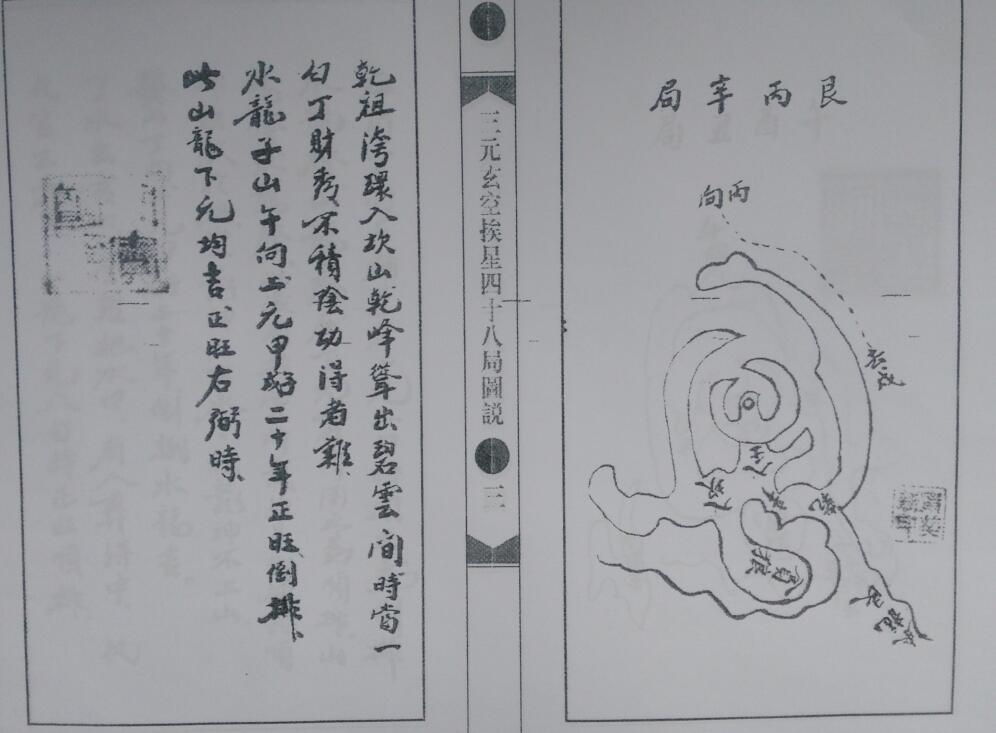 艮丙辛局
丙向
乾
三元玄空挨星四十八局圖説
三
乾祖湾環入坎山乾峰聳出碧雲間時當一
白丁財秀不積陰功得者難
水龍子山午向上元甲好二十年正旺倒排
此山龍下元均吉正旺右弼時